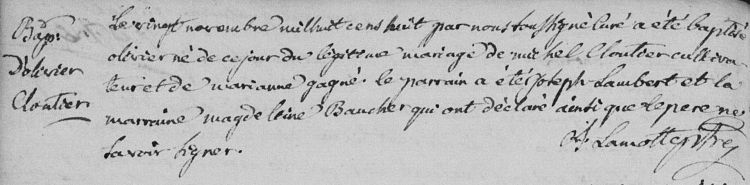 Bap.
D'olivier
Cloutier
Le vingt novembre mil huit cens huit par nous soussigné curé a été baptisé
olivier né de ce jour du légitime mariage de michel Cloutier cultiva
teur et de marianne gagné. le parrain a été Joseph Lambert et la
marraine magdeleine Baucher qui ont déclaré ainsi que le pere ne
savoir signer.